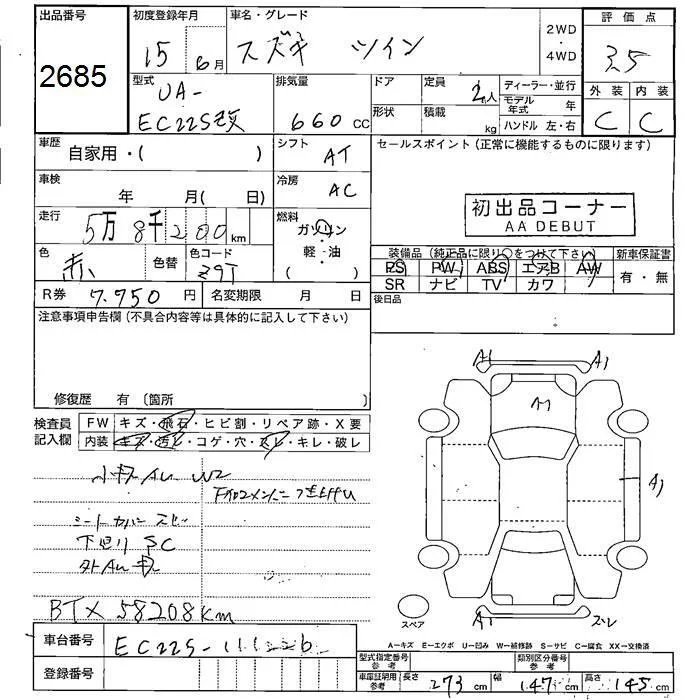 出品番号 2685
初度登録年月 15年 6月
車名・グレード スズキ ツイン
2WD ・ 4WD
評価点 3.5
外装 C 内装 C
型式 UA- EC22S改
排気量 660 CC
ドア
形状
定員 2人
積載 kg
ディーラー・並行
モデル年式 年
ハンドル 左・右
車歴 自家用・( )
シフト AT
セールスポイント(正常に機能するものに限ります)
車検 年 月( 日)
冷房 AC
初出品コーナー
AA DEBUT
走行 5万8千200km
燃料 ガソリン 軽・油 ( )
色 赤 色替 色コード Z9T
装備品(純正品に限り○をつけて下さい) 新車保証書
PS PW ABS エアB AW 有・無
SR ナビ TV カワ
R券 7.750円 名変期限 月 日
後日品
注意事項申告欄(不具合内容等は具体的に記入して下さい)
修復歴 有 〔箇所 〕
検査員記入欄 FW キズ・飛石・ヒビ割・リペア跡・X要
内装 キズ・汚レ・コゲ・穴・スレ・キレ・破レ
小キズ AU W2
シートカバー スレ
下回り SC
BTX 58208km
A1 A1
A1
A1
A1 スレ
スペア
A=キズ E=エクボ U=凹み W=補修跡 S=サビ C=腐食 XX=交換済
車台番号 EC22S-111226
登録番号
型式指定番号 参考 類別区分番号 参考
車庫証明用 参考 長さ 273cm 幅 147cm 高さ 145cm